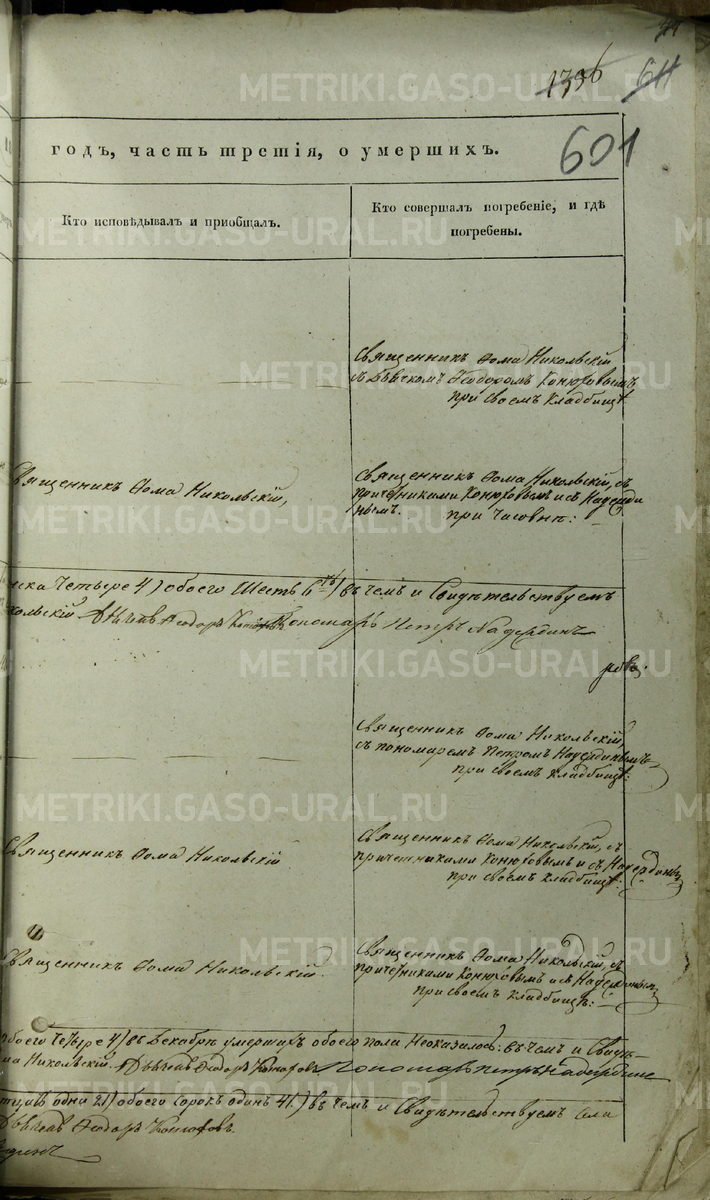 1396
611
601
годъ, часть третія, о умершихъ.
Кто исповѣдывалъ и приобщалъ.
Кто совершалъ погребеніе, и гдѣ
погребены.
Священникъ Ѳома Никольскій
съ Дьячкомъ Ѳеодоромъ Конюховымъ
при своемъ кладбищѣ.
Священникъ Ѳома Никольскій,
Священникъ Ѳома Никольскій, съ
причетниками Конюховымъ и съ Надерди
нымъ. при часовнѣ:
Четыре 4) обоего Шесть 6ть) въ чемъ и Свидѣтельствуемъ
кольскій Дьячекъ Ѳеодоръ Пономарь Петръ Надердинъ
Священникъ Ѳома Никольскій,
съ пономаремъ Петромъ Надердинымъ
при своемъ кладбищѣ.
Священникъ Ѳома Никольскій
Священникъ Ѳома Никольскій, съ
причетниками Конюховымъ и съ Надердинымъ
при своемъ кладбищѣ.
Священникъ Ѳома Никольскій.
Священникъ Ѳома Никольскій, съ
причетниками Конюховымъ и съ Надердинымъ
при своемъ кладбищѣ:
обоего Четыре 4) въ Декабрѣ умершихъ обоего пола Неоказалось: въ чемъ и Свидѣ-
ма Никольскій. Дьячекъ Ѳеодоръ Конюховъ Пономарь Петръ Надердинъ
одна 21) обоего сорокъ одинъ 41.) въ чемъ и Свидѣтельствуемъ Села
Дьячекъ Ѳеодоръ Конюховъ.
METRIKI.GASO-URAL.RU
METRIKI.GASO-URAL.RU
METRIKI.GASO-URAL.RU
METRIKI.GASO-URAL.RU
METRIKI.GASO-URAL.RU
METRIKI.GASO-URAL.RU
METRIKI.GASO-URAL.RU
METRIKI.GASO-URAL.RU